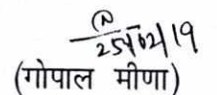 25/02/19
(गोपाल मीणा)